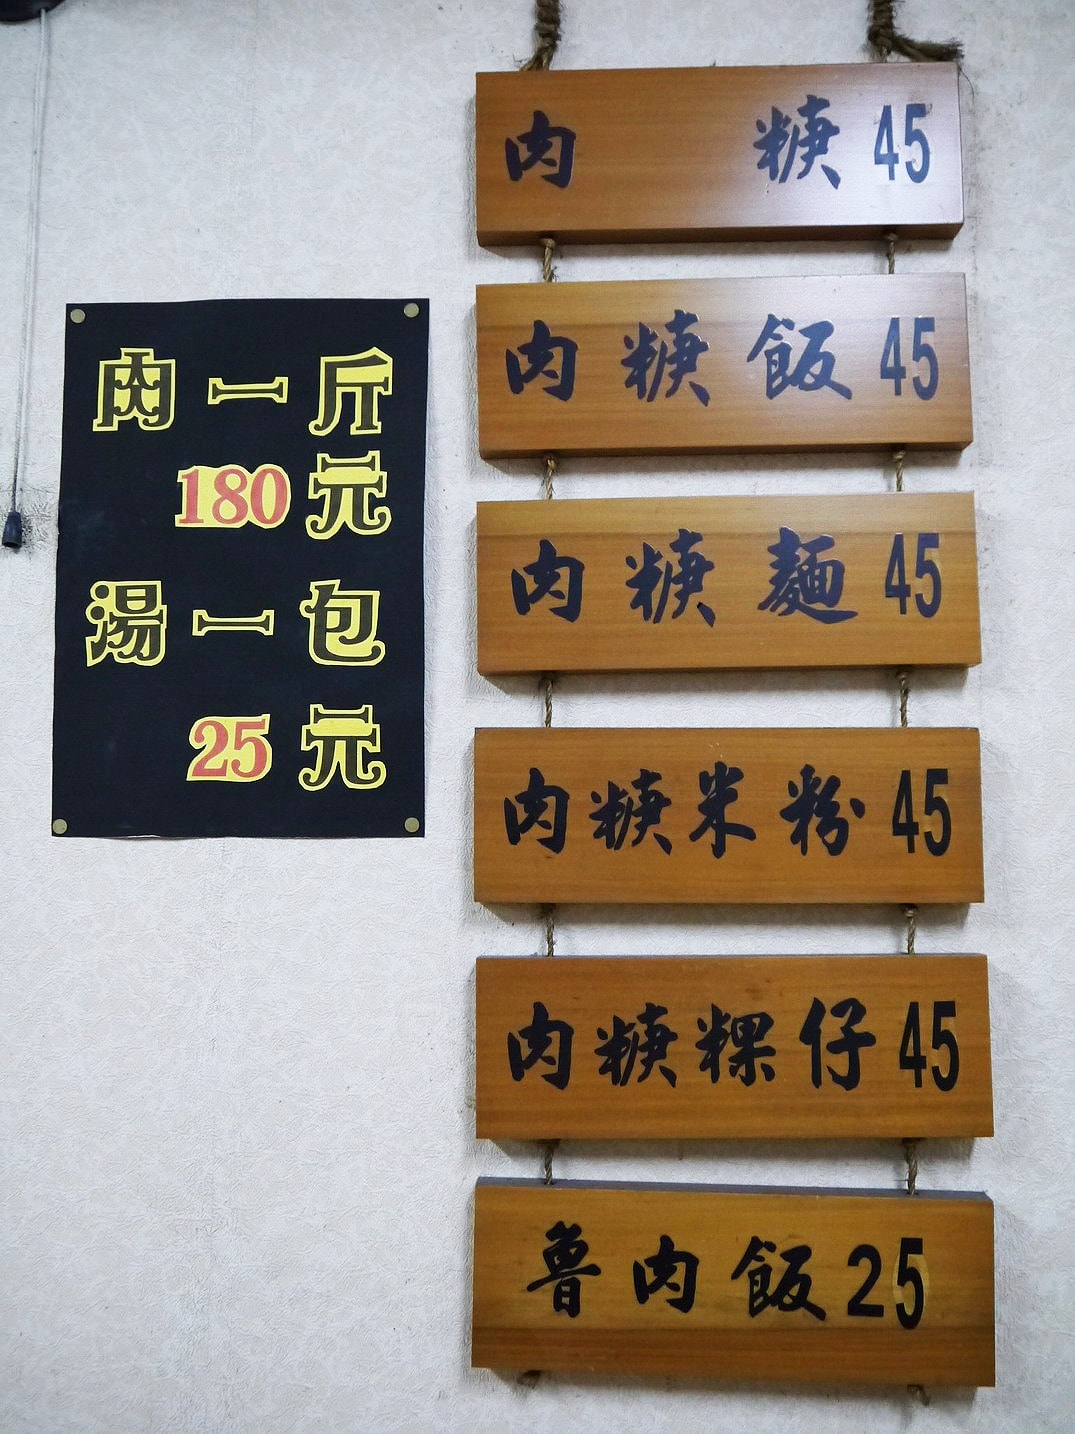 肉一斤
180元
湯一包
25元
肉糠45
肉糠飯45
肉糠麵45
肉糠米粉45
肉糠粿仔45
魯肉飯25